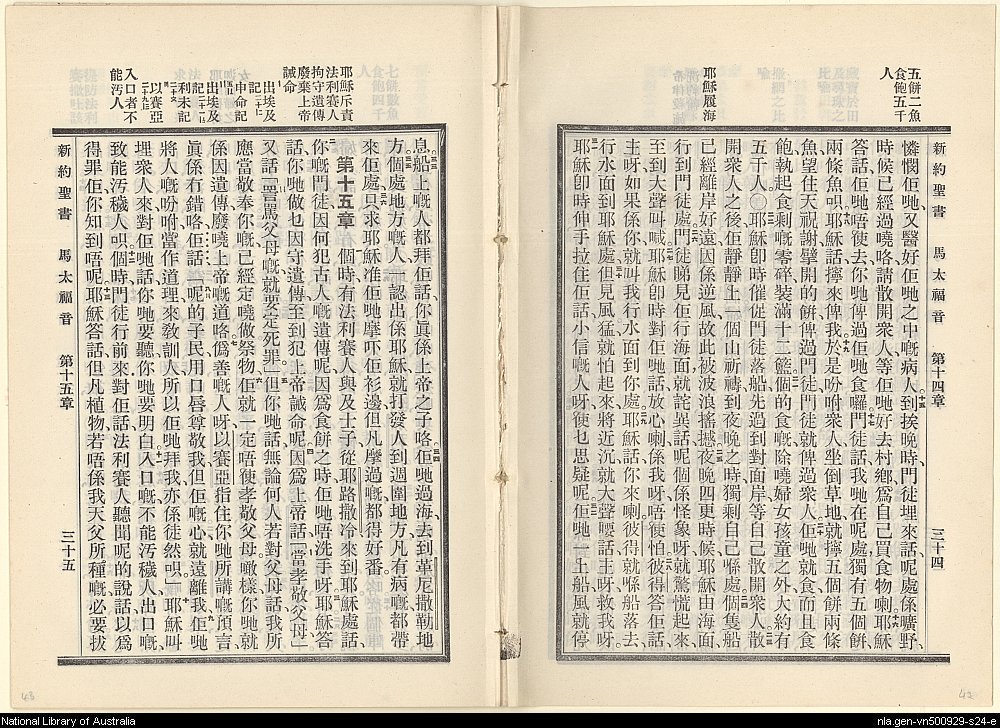 五餅二魚
食飽五千
人
耶穌履海
新約聖書 馬太福音 第十四章 三十四
憐憫佢哋又醫好佢哋之中嘅病人到挨晚時門徒埋來話呢處係曠野
時候已經過曉咯請散開衆人等佢哋好去村鄉爲自己買食物喇耶穌
答話佢哋唔使去你哋俾過佢哋食囉門徒話我哋在呢處獨有五個餅
兩條魚唄耶穌話擰來俾我於是吩咐衆人坐倒草地就擰五個餅兩條
魚望住天祝謝擘開的餅俾過門徒門徒就俾過衆人佢哋就食而且食
飽執起食剩嘅零碎裝滿十二籃個的食嘅除曉婦女孩童之外大約有
五千人〇耶穌卽時催促門徒落船先過到對面岸等自己散開衆人散
開衆人之後佢靜靜上一個山祈禱到夜晚之時獨剩自己喺處個隻船
已經離岸好遠因係逆風故此被波浪搖撼夜晚四更時候耶穌由海面
行到門徒處門徒睇見佢行海面就詫異話呢個係怪象呀就驚慌起來
至到大聲叫喊耶穌卽時對佢哋話放心喇係我呀唔使怕彼得答佢話
主呀如果係你就叫我行水面到你處耶穌話你來喇彼得就喺船落去
行水面到耶穌處但見風猛就怕起來將近沉就大聲嘤話主呀救我呀
耶穌卽時伸手拉住佢話小信嘅人呀使乜思疑呢佢哋一上船風就停
耶穌斥責
法利賽人
拘守遺傳
廢棄上帝
誡命
出埃及
記二十
申命記
出埃及
記二十一
利未記
二十
以賽亞
二十九
入口者不
能汚人
息船上嘅人都拜佢話你眞係上帝之子咯佢哋過海去到革尼撒勒地
方個處地方嘅人一認出係耶穌就打發人到週圍地方凡有病嘅都帶
來佢處只求耶穌准佢哋摩吓佢衫邊但凡摩過嘅都得好番
第十五章 個時有法利賽人與及士子從耶路撒冷來到耶穌處話
你嘅門徒因何犯古人嘅遺傳呢因爲食餅之時佢哋唔洗手呀耶穌答
話你哋做乜因守遺傳至到犯上帝誡命呢因爲上帝話「當孝敬父母」
又話「詈罵父母嘅就要定死罪」但你哋話無論何人若對父母話我所
應當敬奉你嘅已經定曉做祭物佢就一定唔使孝敬父母噉樣你哋就
係因遺傳廢曉上帝嘅道咯僞善嘅人呀以賽亞指住你哋所講嘅預言
眞係冇錯咯佢話「呢的子民用口唇尊敬我但佢嘅心就遠離我佢哋
將人嘅吩咐當作道理來敎訓人所以佢哋拜我亦係徒然唄」耶穌叫
埋衆人來對佢哋話你哋要聽你哋要明白入口嘅不能汚穢人出口嘅
致能汚穢人唄個時門徒行前來對佢話法利賽人聽聞呢的說話以爲
得罪佢你知到唔呢耶穌答話但凡植物若唔係我天父所種嘅必要拔
新約聖書 馬太福音 第十五章 三十五
43
42
National Library of Australia
nla.gen-vn500929-s24-e